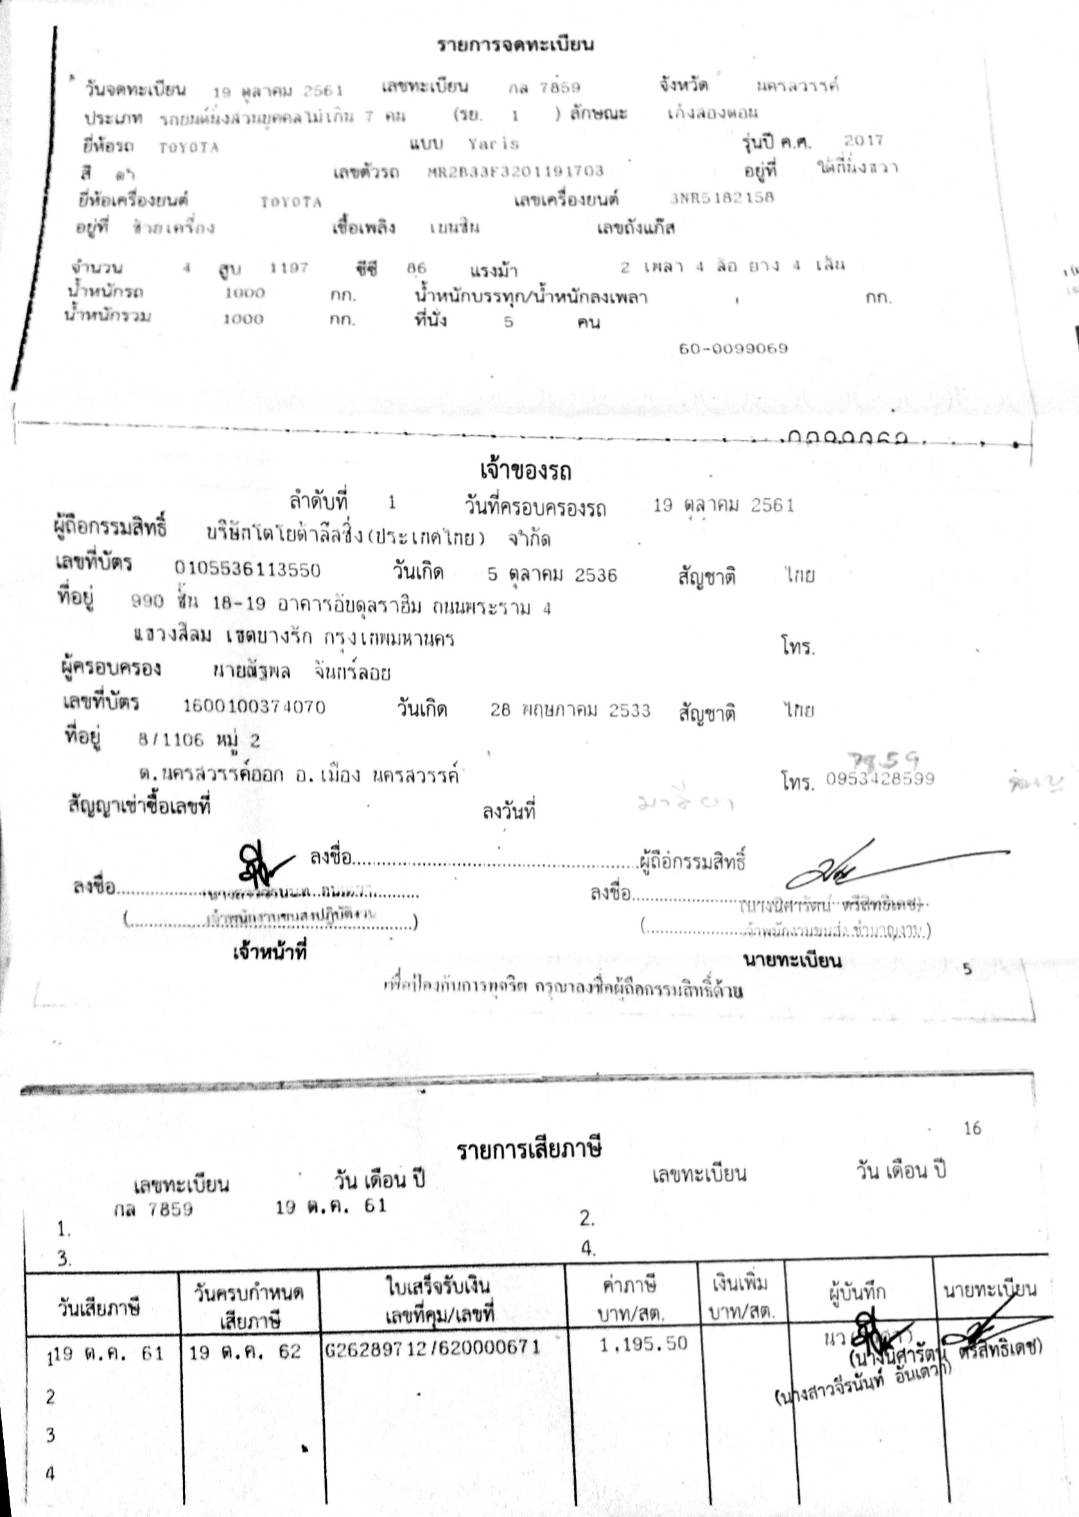 รายการจดทะเบียน
วันจดทะเบียน 19 ตุลาคม 2561 เลขทะเบียน กล 7859 จังหวัด นครสวรรค์
ประเภท รถยนต์นั่งส่วนบุคคลไม่เกิน 7 คน (รย. 1 ) ลักษณะ เก๋งสองตอน
ยี่ห้อรถ TOYOTA แบบ Yaris รุ่นปี ค.ศ. 2017
สี ดำ เลขตัวรถ MR2B33F3201191703 อยู่ที่ ใต้ที่นั่งขวา
ยี่ห้อเครื่องยนต์ TOYOTA เลขเครื่องยนต์ 3NR5182158
อยู่ที่ ซ้ายเครื่อง เชื้อเพลิง เบนซิน เลขถังแก๊ส
จำนวน 4 สูบ 1197 ซีซี 86 แรงม้า 2 เพลา 4 ล้อ ยาง 4 เส้น
น้ำหนักรถ 1000 กก. น้ำหนักบรรทุก/น้ำหนักลงเพลา กก.
น้ำหนักรวม 1000 กก. ที่นั่ง 5 คน
60-0099069
เจ้าของรถ
ลำดับที่ 1 วันที่ครอบครองรถ 19 ตุลาคม 2561
ผู้ถือกรรมสิทธิ์ บริษัทโตโยต้าลีสซิ่ง(ประเทศไทย) จำกัด
เลขที่บัตร 0105536113550 วันเกิด 5 ตุลาคม 2536 สัญชาติ ไทย
ที่อยู่ 990 ชั้น 18-19 อาคารอับดุลราฮิม ถนนพระราม 4
แขวงสีลม เขตบางรัก กรุงเทพมหานคร โทร.
ผู้ครอบครอง นายณัฐพล จันทร์ลอย
เลขที่บัตร 1600100374070 วันเกิด 28 พฤษภาคม 2533 สัญชาติ ไทย
ที่อยู่ 8/1106 หมู่ 2
7859
ต.นครสวรรค์ออก อ.เมือง นครสวรรค์ โทร. 0953428599
สัญญาเช่าซื้อเลขที่ ลงวันที่ มารียา
ลงชื่อ ผู้ถือกรรมสิทธิ์
ลงชื่อ ลงชื่อ (นางนิศารัตน์ ตรีสิทธิเดช)
(เจ้าพนักงานขนส่งปฏิบัติงาน) (เจ้าพนักงานขนส่งชำนาญงาน)
เจ้าหน้าที่ นายทะเบียน
5
เพื่อป้องกันการทุจริต กรุณาลงชื่อผู้ถือกรรมสิทธิ์ด้วย
16
รายการเสียภาษี
เลขทะเบียน วัน เดือน ปี เลขทะเบียน วัน เดือน ปี
กล 7859 19 ต.ค. 61
1. 2.
3. 4.
วันเสียภาษี วันครบกำหนดเสียภาษี ใบเสร็จรับเงิน เลขที่คุม/เลขที่ ค่าภาษี บาท/สต. เงินเพิ่ม บาท/สต. ผู้บันทึก นายทะเบียน
1 19 ต.ค. 61 19 ต.ค. 62 G26289712/620000671 1,195.50
(นางนิศารัตน์ ตรีสิทธิเดช)
(นางสาวจีรนันท์ อันเดวา)
2
3
4